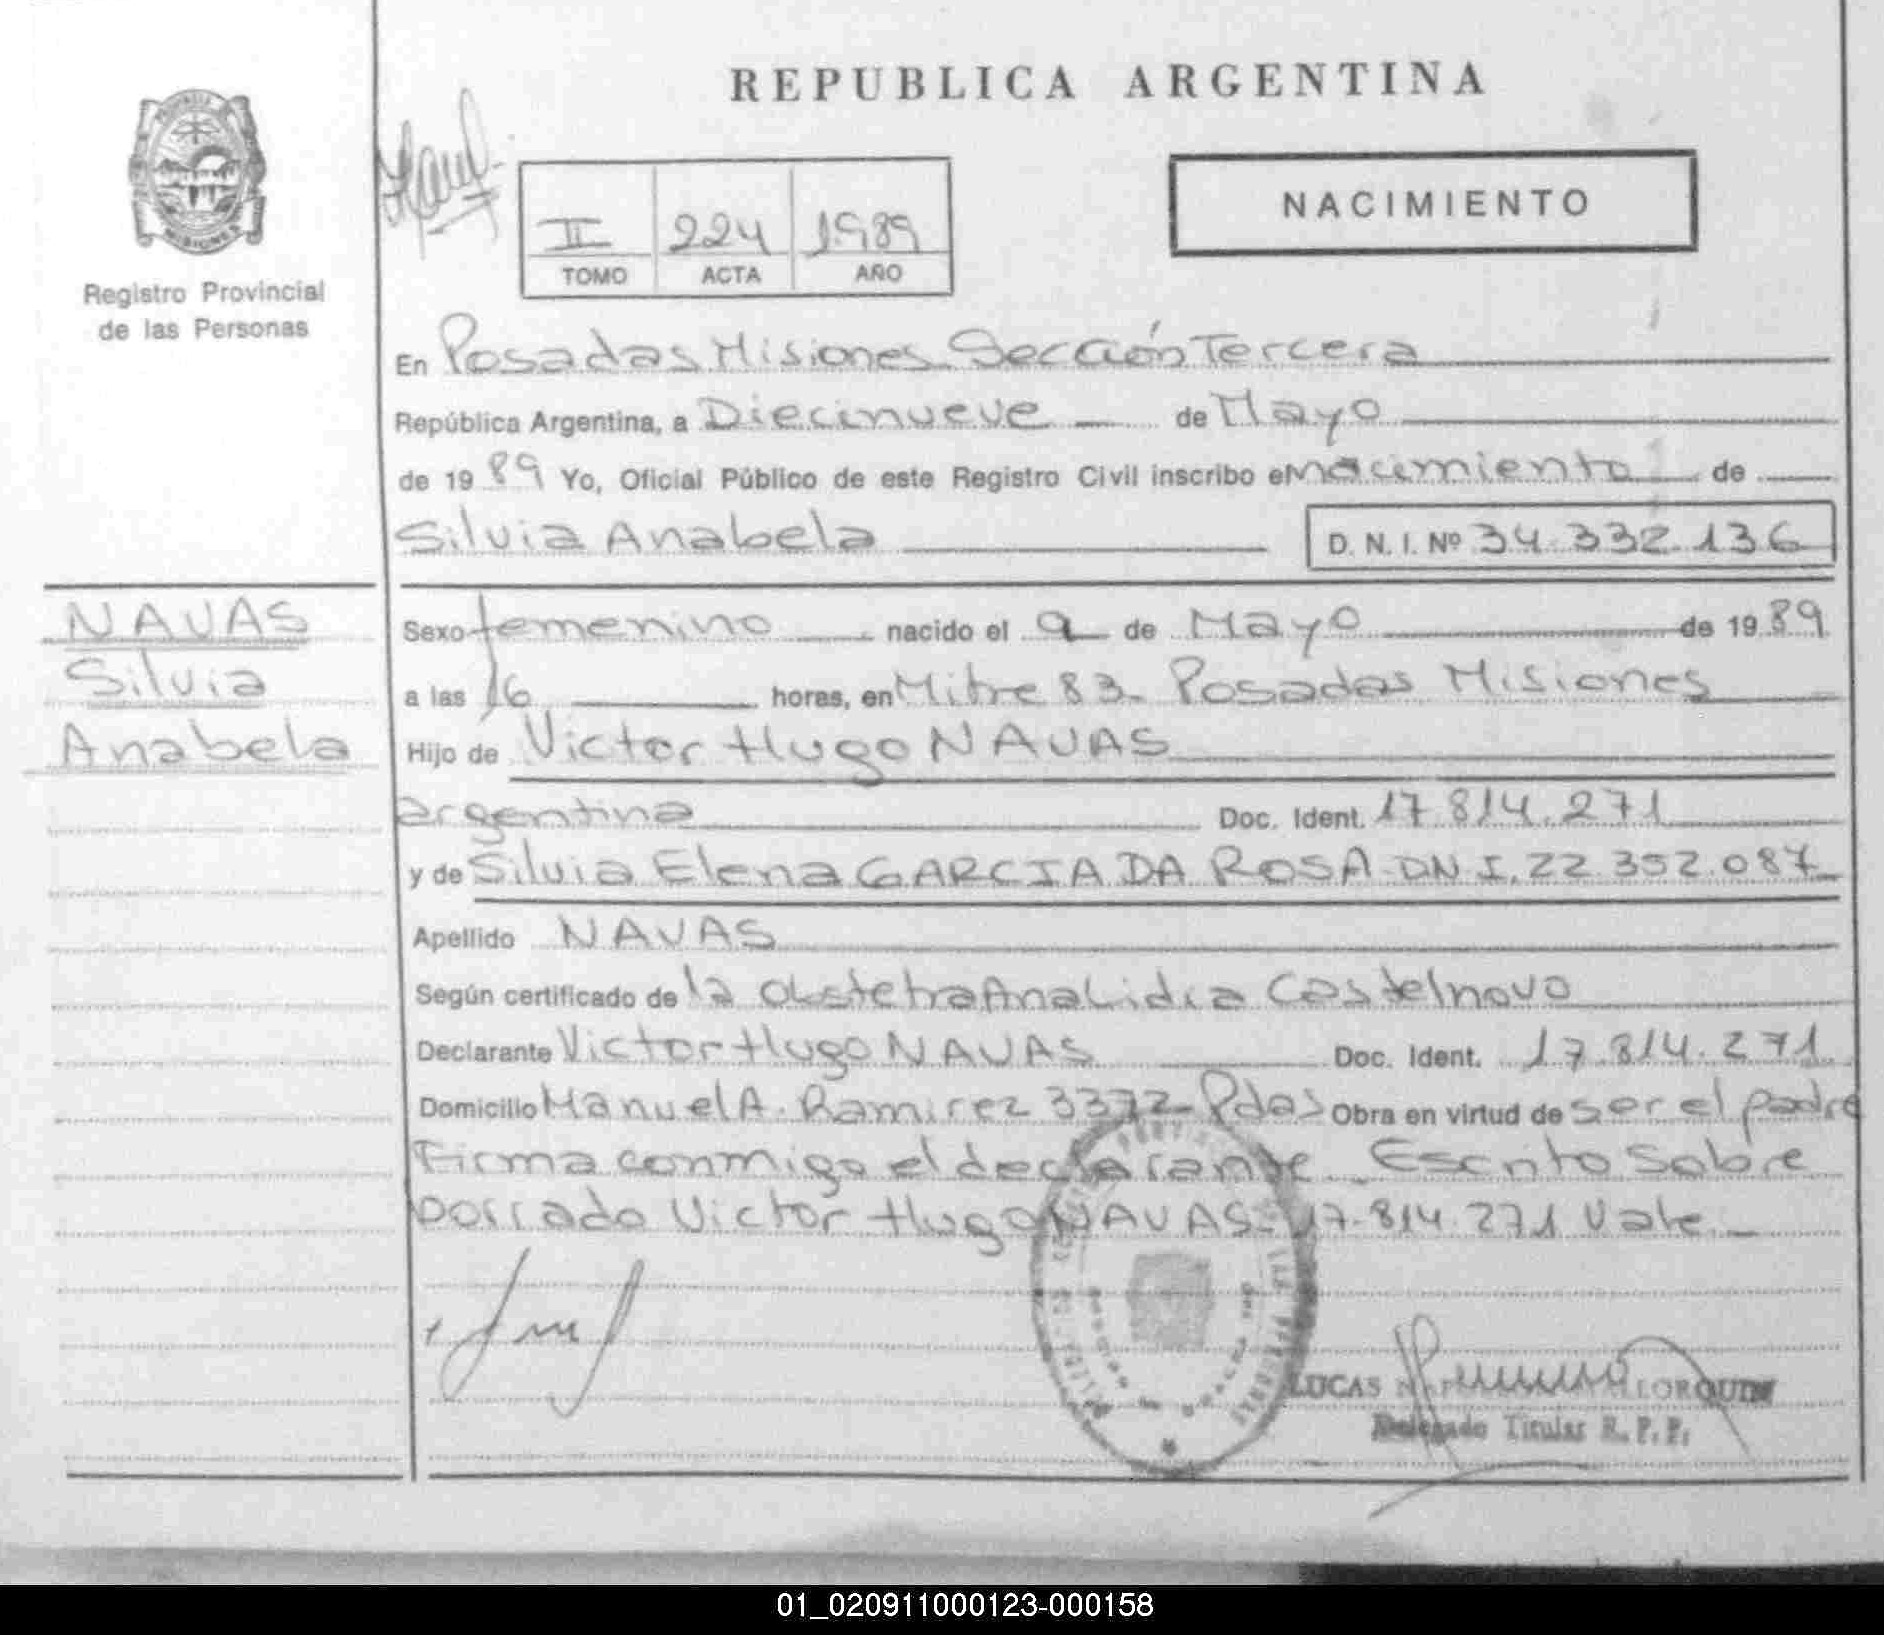 REPUBLICA ARGENTINA
NACIMIENTO
II 224 1989
TOMO ACTA AÑO
MISIONES
Registro Provincial
de las Personas
En Posadas Misiones Sección Tercera
República Argentina, a Diecinueve de Mayo
de 1989 Yo, Oficial Público de este Registro Civil inscribo el nacimiento de
Silvia Anabela D. N. I. Nº 34.332.136
NAVAS
Silvia
Anabela
Sexo femenino nacido el 9 de Mayo de 1989
a las 16 horas, en Mitre 83- Posadas Misiones
Hijo de Victor Hugo NAVAS
argentina Doc. Ident. 17.814.271
y de Silvia Elena GARCIA DA ROSA-DNI.22.352.087
Apellido NAVAS
Según certificado de la Obstetra Ana Lidia Castelnovo
Declarante Victor Hugo NAVAS Doc. Ident. 17.814.271
Domicilio Manuel A. Ramirez 3372- Pdas Obra en virtud de ser el padre
Firma conmigo el declarante_ Escrito Sobre
borrado Victor Hugo NAVAS- 17.814.271 Vale_
LUCAS LLORQUIN
Delegado Titular R. P. P.
01_020911000123-000158